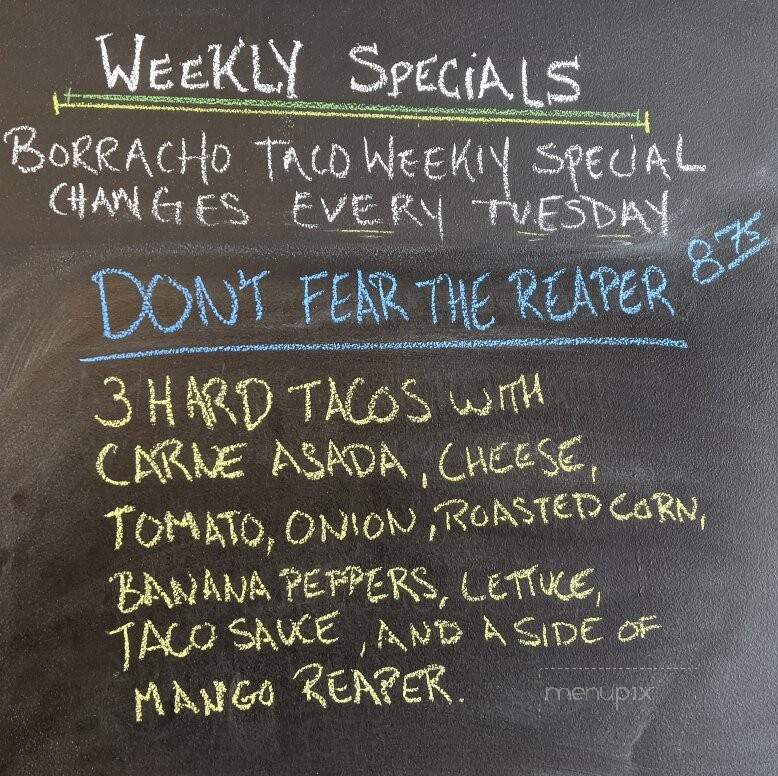 WEEKLY SPECIALS
BORRACHO TACO WEEKLY SPECIAL
CHANGES EVERY TUESDAY
DON'T FEAR THE REAPER 8.75
3 HARD TACOS WITH
CARNE ASADA, CHEESE,
TOMATO, ONION, ROASTED CORN,
BANANA PEPPERS, LETTUCE,
TACO SAUCE, AND A SIDE OF
MANGO REAPER.
menupix